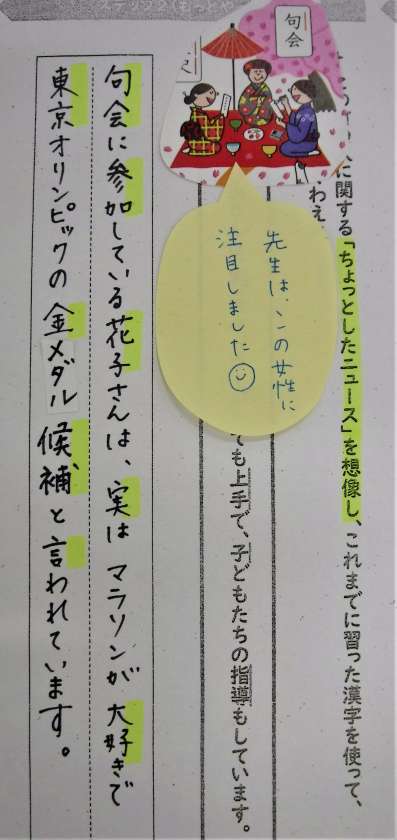 句会
に関する「ちょっとしたニュース」を想像し、これまでに習った漢字を使って、
わえ
先生は、この女性に
注目しました
ても上手で、子どもたちの指導もしています。
句会に参加している花子さんは、実はマラソンが大好きで
東京オリンピックの金メダル候補と言われています。